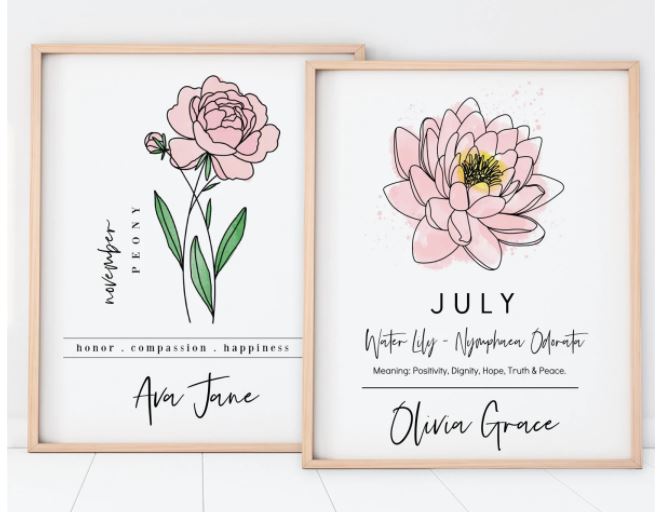 november
PEONY
honor . compassion . happiness
Ava Jane
JULY
Water Lily - Nymphaea Odorata
Meaning: Positivity, Dignity, Hope, Truth & Peace.
Olivia Grace